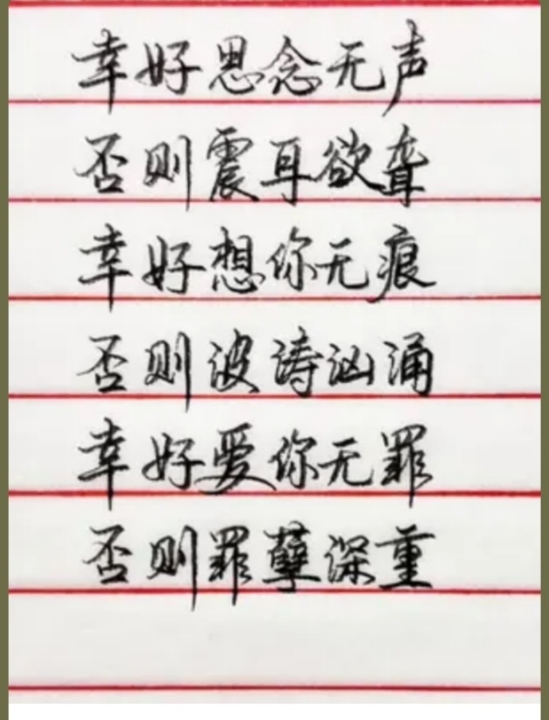 幸好思念无声
否则震耳欲聋
幸好想你无痕
否则波诗汹涌
幸好爱你无罪
否则罪孽深重